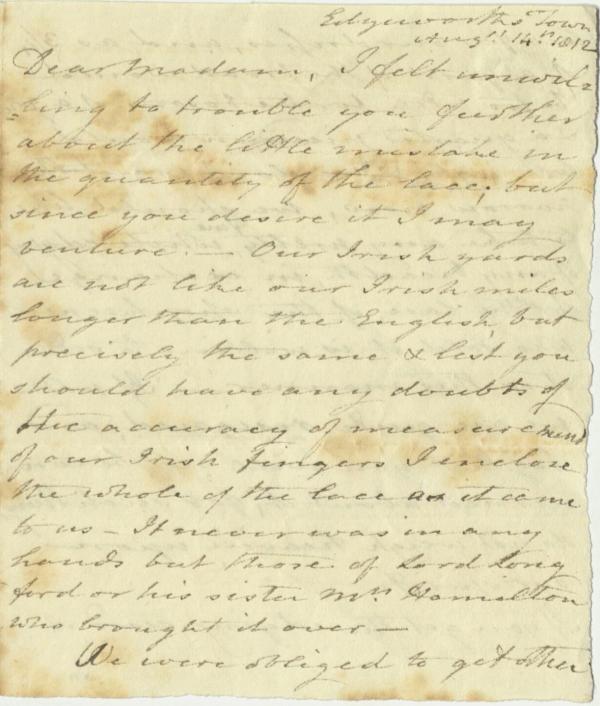 Edgeworth's Town
Augt 14th 1812
Dear Madam, I felt unwil-
-ling to trouble you further
about the little mistake in
the quantity of the lace; but
since you desire it I may
venture. — Our Irish yards
are not like our Irish miles
longer than the English, but
precisely the same & lest you
should have any doubts of
the accuracy of measurement
of our Irish fingers I enclose
the whole of the lace as it came
to us — It never was in any
hands but those of Lord Long
ford or his sister Mrs Hamilton
who brought it over —
We were obliged to get other